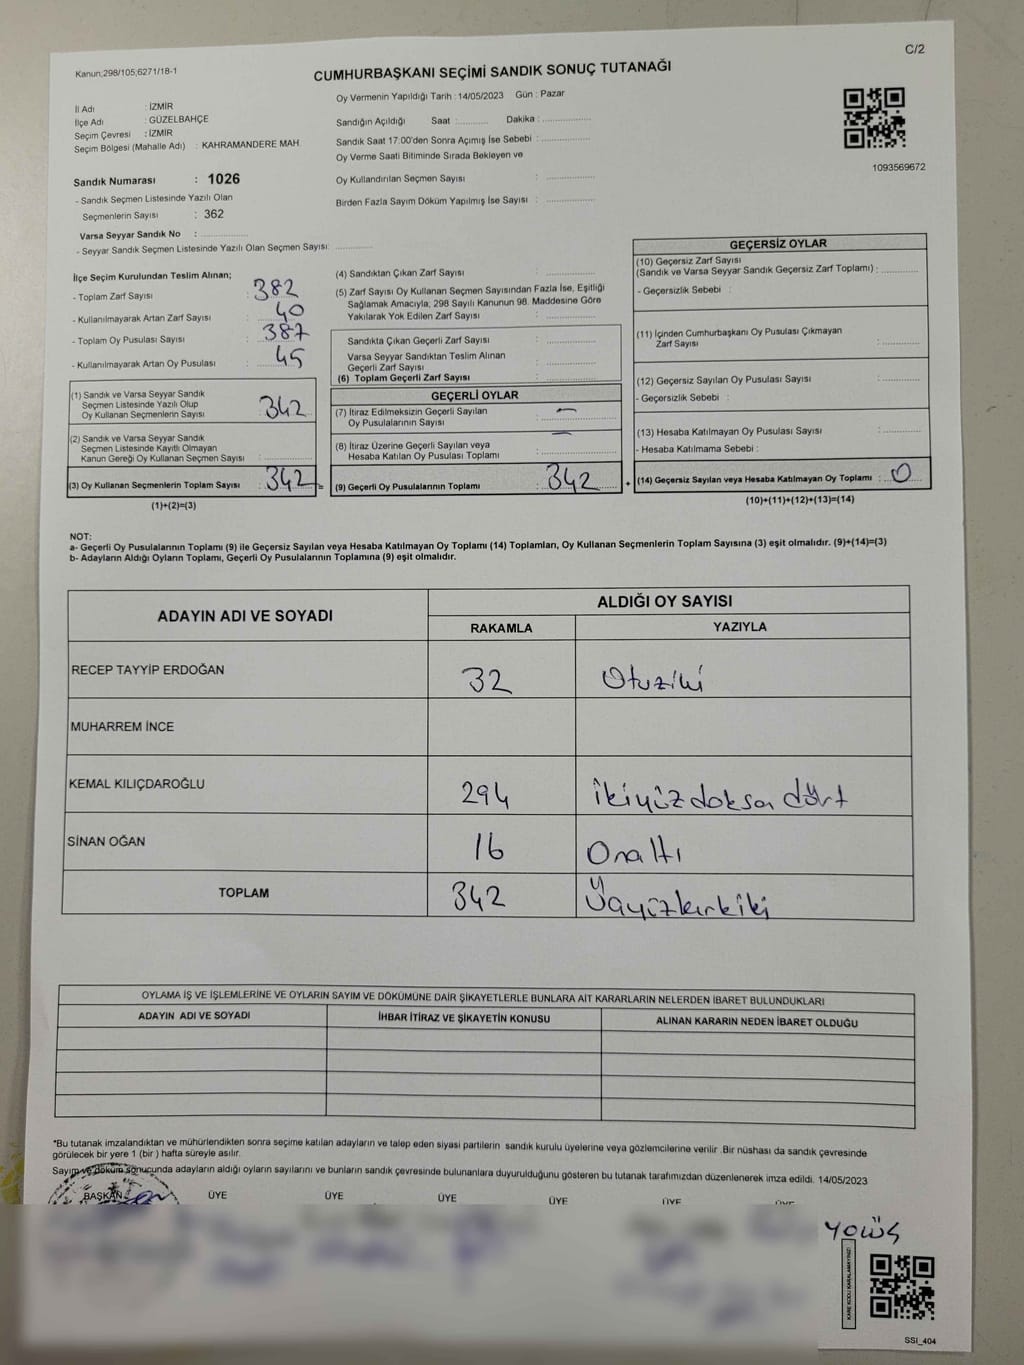 C/2
Kanun;298/105;6271/18-1
CUMHURBAŞKANI SEÇİMİ SANDIK SONUÇ TUTANAĞI
İl Adı : İZMİR
İlçe Adı : GÜZELBAHÇE
Seçim Çevresi : İZMİR
Seçim Bölgesi (Mahalle Adı) : KAHRAMANDERE MAH.
Sandık Numarası : 1026
- Sandık Seçmen Listesinde Yazılı Olan
Seçmenlerin Sayısı : 362
Varsa Seyyar Sandık No :
- Seyyar Sandık Seçmen Listesinde Yazılı Olan Seçmen Sayısı:
Oy Vermenin Yapıldığı Tarih : 14/05/2023 Gün : Pazar
Sandığın Açıldığı Saat : Dakika :
Sandık Saat 17:00'den Sonra Açımış İse Sebebi :
Oy Verme Saati Bitiminde Sırada Bekleyen ve
Oy Kullandırılan Seçmen Sayısı :
Birden Fazla Sayım Döküm Yapılmış İse Sayısı :
1093569672
İlçe Seçim Kurulundan Teslim Alınan;
- Toplam Zarf Sayısı : 382
- Kullanılmayarak Artan Zarf Sayısı : 40
- Toplam Oy Pusulası Sayısı : 387
- Kullanılmayarak Artan Oy Pusulası : 45
(1) Sandık ve Varsa Seyyar Sandık
Seçmen Listesinde Yazılı Olup
Oy Kullanan Seçmenlerin Sayısı : 342
(2) Sandık ve Varsa Seyyar Sandık
Seçmen Listesinde Kayıtlı Olmayan
Kanun Gereği Oy Kullanan Seçmen Sayısı :
(3) Oy Kullanan Seçmenlerin Toplam Sayısı : 342 =
(1)+(2)=(3)
(4) Sandıktan Çıkan Zarf Sayısı :
(5) Zarf Sayısı Oy Kullanan Seçmen Sayısından Fazla İse, Eşitliği
Sağlamak Amacıyla; 298 Sayılı Kanunun 98. Maddesine Göre
Yakılarak Yok Edilen Zarf Sayısı :
Sandıkta Çıkan Geçerli Zarf Sayısı :
Varsa Seyyar Sandıktan Teslim Alınan
Geçerli Zarf Sayısı :
(6) Toplam Geçerli Zarf Sayısı :
GEÇERLİ OYLAR
(7) İtiraz Edilmeksizin Geçerli Sayılan
Oy Pusulalarının Sayısı : –
(8) İtiraz Üzerine Geçerli Sayılan veya
Hesaba Katılan Oy Pusulası Toplamı : –
(9) Geçerli Oy Pusulalarının Toplamı : 342 +
GEÇERSİZ OYLAR
(10) Geçersiz Zarf Sayısı
(Sandık ve Varsa Seyyar Sandık Geçersiz Zarf Toplamı) :
- Geçersizlik Sebebi :
(11) İçinden Cumhurbaşkanı Oy Pusulası Çıkmayan
Zarf Sayısı :
(12) Geçersiz Sayılan Oy Pusulası Sayısı :
- Geçersizlik Sebebi :
(13) Hesaba Katılmayan Oy Pusulası Sayısı :
- Hesaba Katılmama Sebebi :
(14) Geçersiz Sayılan veya Hesaba Katılmayan Oy Toplamı : 0
(10)+(11)+(12)+(13)=(14)
NOT:
a- Geçerli Oy Pusulalarının Toplamı (9) ile Geçersiz Sayılan veya Hesaba Katılmayan Oy Toplamı (14) Toplamları, Oy Kullanan Seçmenlerin Toplam Sayısına (3) eşit olmalıdır. (9)+(14)=(3)
b- Adayların Aldığı Oyların Toplamı, Geçerli Oy Pusulalarının Toplamına (9) eşit olmalıdır.
ADAYIN ADI VE SOYADI ALDIĞI OY SAYISI
RAKAMLA YAZIYLA
RECEP TAYYİP ERDOĞAN 32 Otuziki
MUHARREM İNCE
KEMAL KILIÇDAROĞLU 294 ikiyüzdoksan dört
SİNAN OĞAN 16 Onaltı
TOPLAM 342 Üçyüzkırkiki
OYLAMA İŞ VE İŞLEMLERİNE VE OYLARIN SAYIM VE DÖKÜMÜNE DAİR ŞİKAYETLERLE BUNLARA AİT KARARLARIN NELERDEN İBARET BULUNDUKLARI
ADAYIN ADI VE SOYADI İHBAR İTİRAZ VE ŞİKAYETİN KONUSU ALINAN KARARIN NEDEN İBARET OLDUĞU
*Bu tutanak imzalandıktan ve mühürlendikten sonra seçime katılan adayların ve talep eden siyasi partilerin sandık kurulu üyelerine veya gözlemcilerine verilir .Bir nüshası da sandık çevresinde
görülecek bir yere 1 (bir ) hafta süreyle asılır.
Sayım ve döküm sonucunda adayların aldığı oyların sayılarını ve bunların sandık çevresinde bulunanlara duyurulduğunu gösteren bu tutanak tarafımızdan düzenlenerek imza edildi. 14/05/2023
BAŞKAN ÜYE ÜYE ÜYE ÜYE ÜYE
KARE KODU KARALAMAYINIZ!
SSI_404